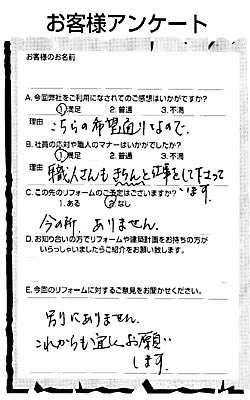 お客様アンケート
お客様のお名前
A. 今回弊社をご利用になされてのご感想はいかがですか?
1.満足 2.普通 3.不満
理由 こちらの希望通りなので.
B. 社員の応対や職人のマナーはいかがでしたか?
1.満足 2.普通 3.不満
理由 職人さんもきちんと仕事をして下さって
います.
C. この先のリフォームのご予定はございますか?
1.ある 2.なし
今の所、ありません.
D. お知り合いの方でリフォームや建築計画をお持ちの方が
いらっしいましたらご紹介をお願い致します。
E. 今回のリフォームに対するご意見をお聞かせください。
別にありません.
これからも宜しくお願い
します.